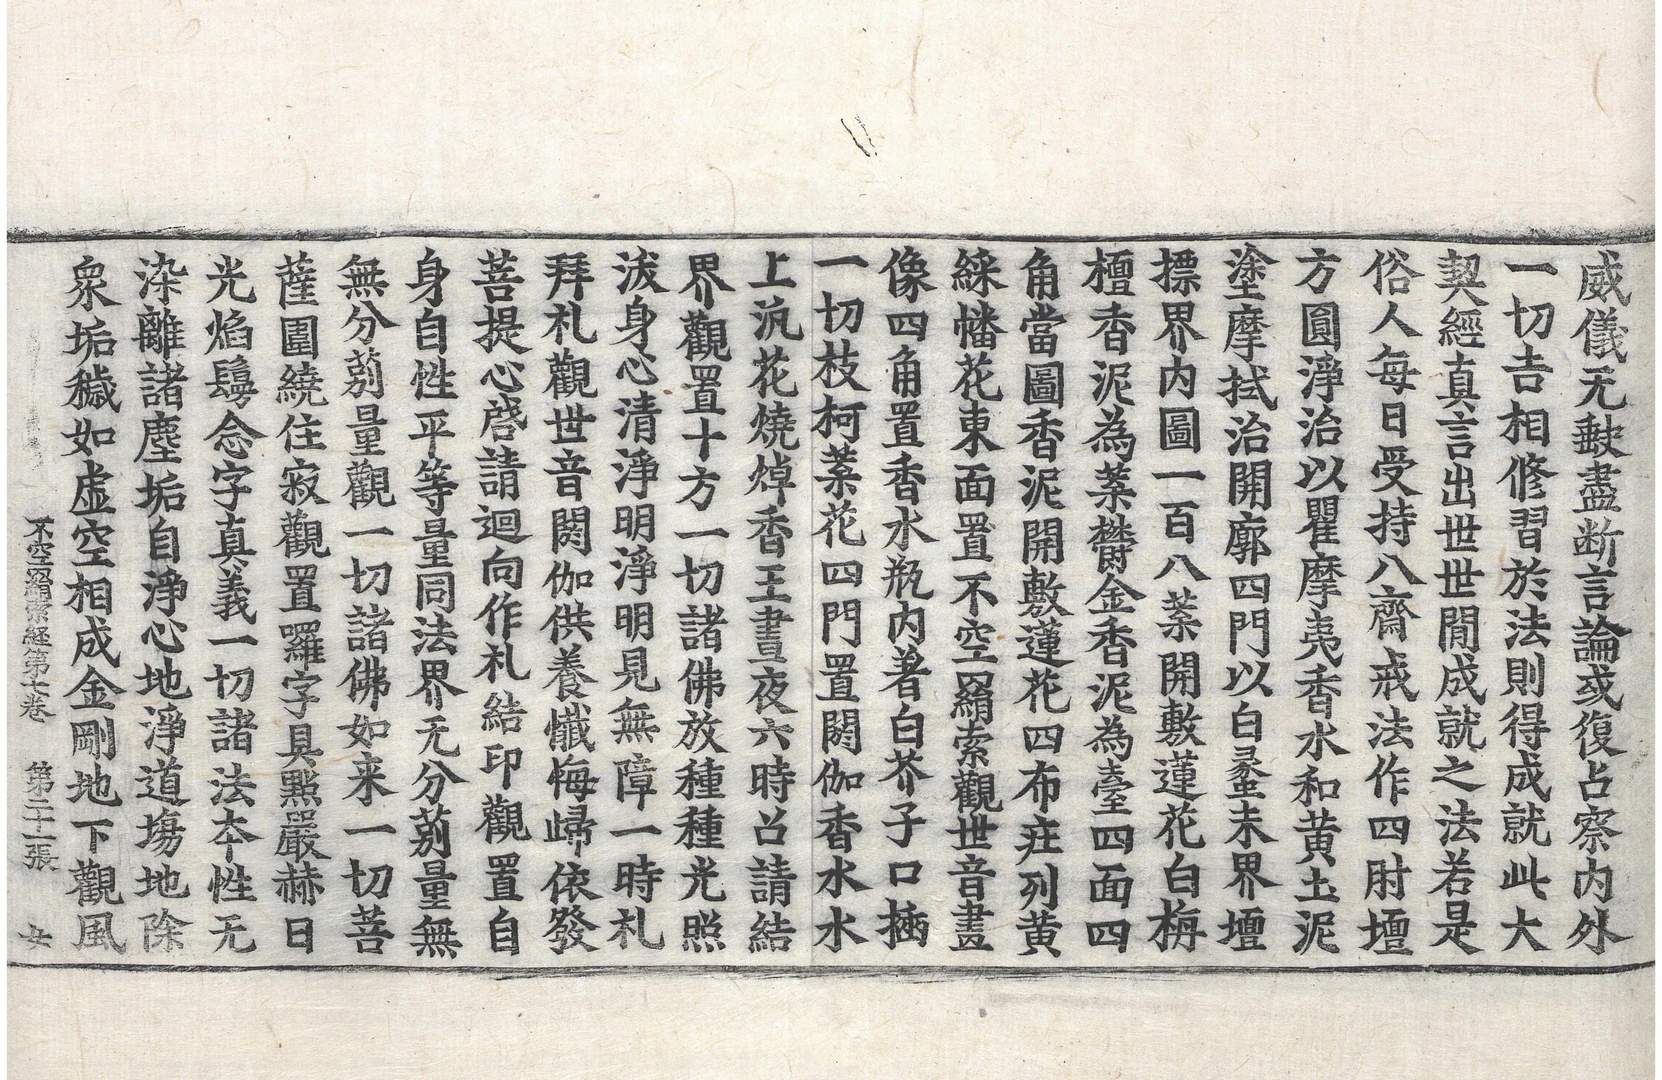 威儀无缺盡断言論或復占察内外
一切吉相修習於法則得成就此大
契經真言出世世間成就之法若是
俗人每日受持八齋戒法作四肘壇
方圓淨治以瞿摩夷香水和黄土泥
塗摩拭治開廓四門以白㲲未界壇
摽界内圖一百八葉開敷蓮花白栴
檀香泥為葉欝金香泥為臺四面四
角當圖香泥開敷蓮花四布㽵列黄
綵幡花東面置不空羂索觀世音畫
像四角置香水瓶内著白芥子口插
一切枝柯葉花四門置閼伽香水水
上汎花燒焯香王晝夜六時召請結
界觀置十方一切諸佛放種種光照
沷身心清淨明淨明見無障一時礼
拜礼觀世音閼伽供養懺悔歸依發
菩提心啓請迴向作礼結印觀置自
身自性平等量同法界无分莂量無
無分莂量觀一切諸佛如来一切菩
薩圍繞住寂觀置囉字具點嚴赫日
光焰鬘念字真義一切諸法本性无
染離諸塵垢自淨心地淨道塲地除
衆垢穢如虚空相成金剛地下觀風
不空羂索経第七卷 第二十一張 女